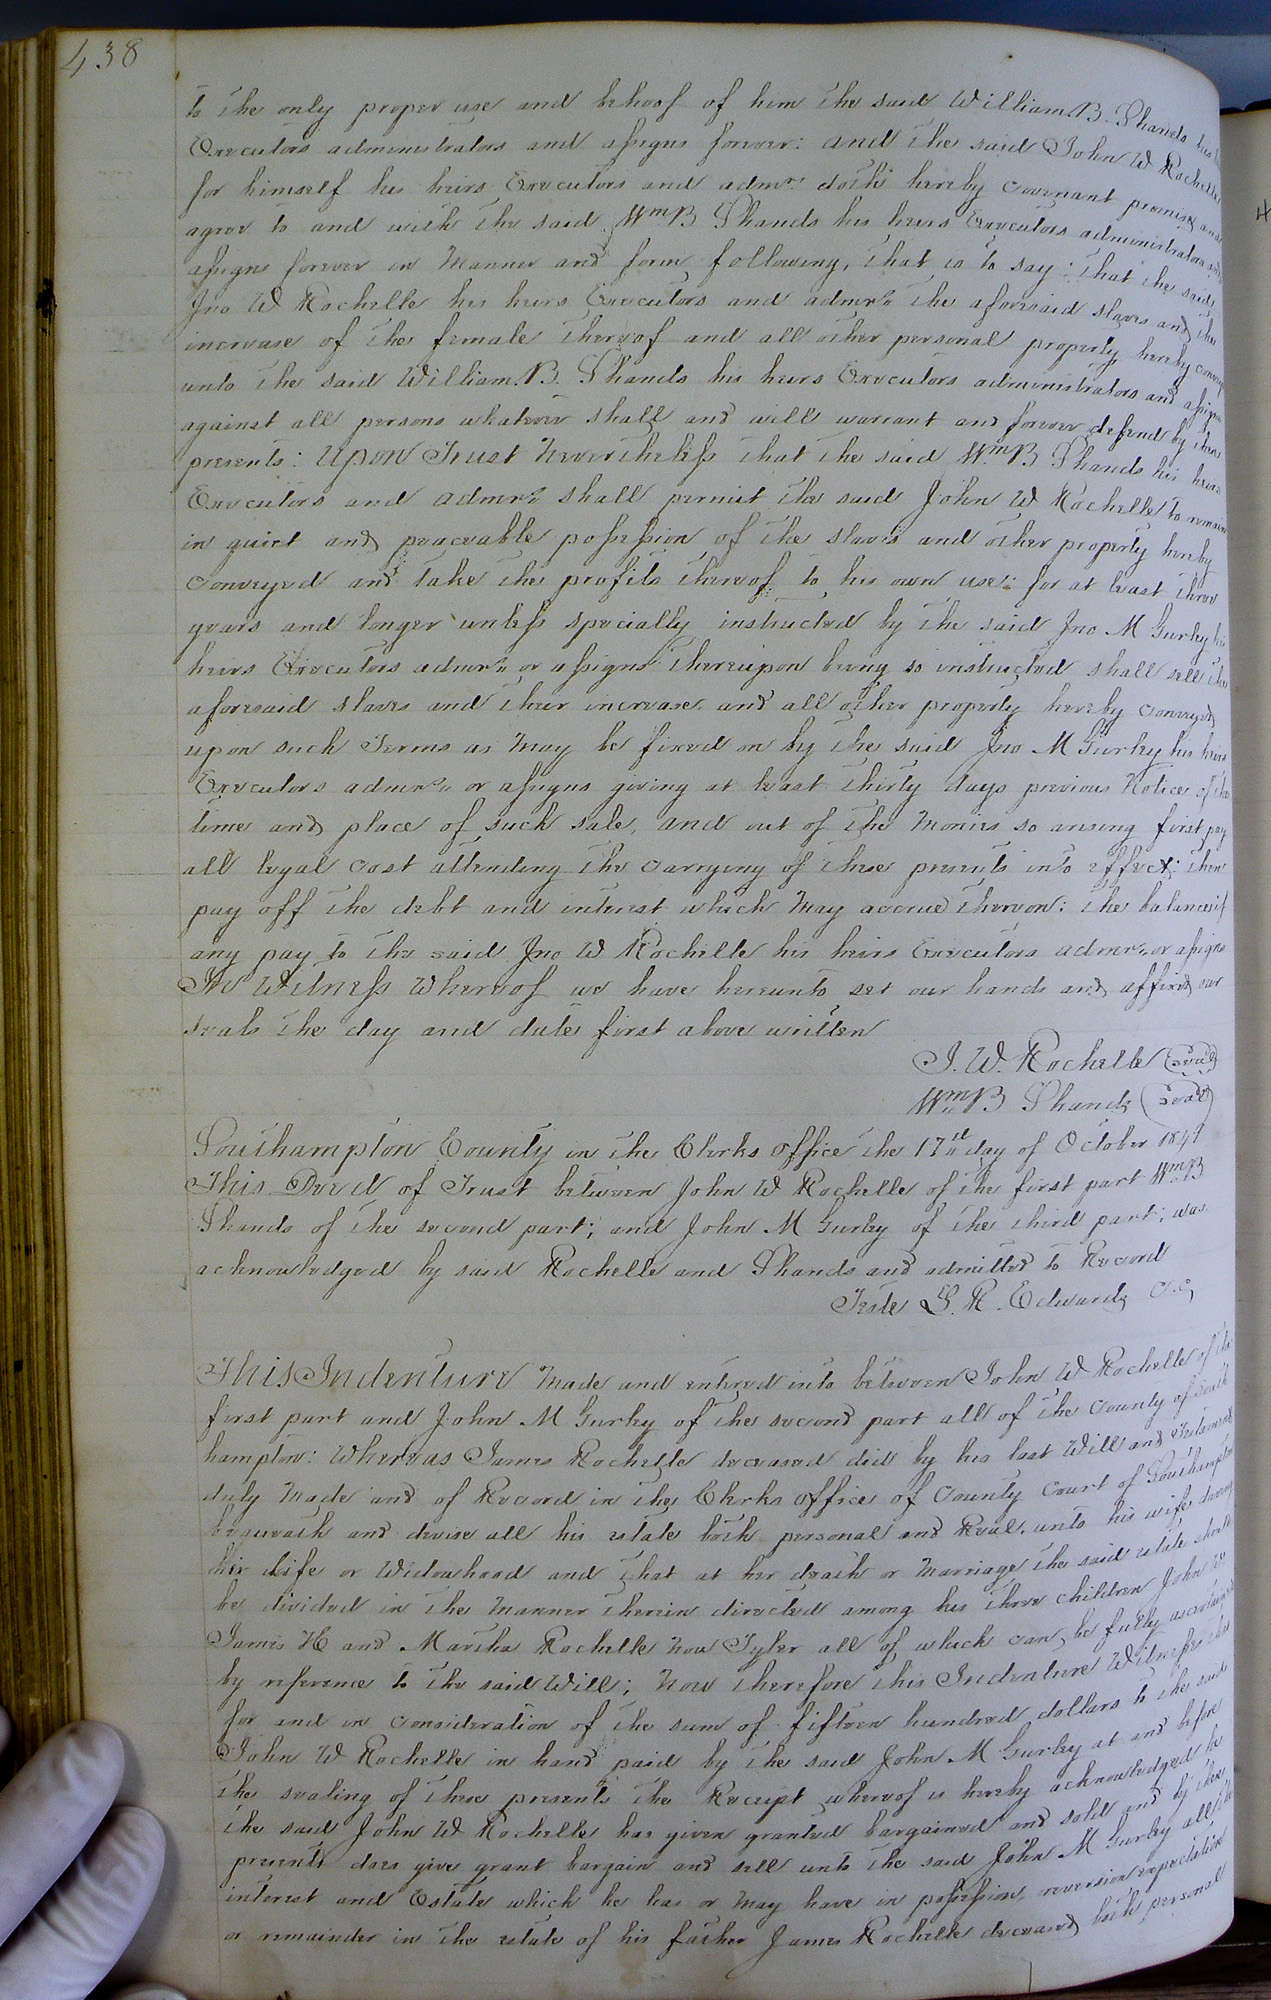 438
to the only proper use and behoof of him the said William B. Shands his
Executors administrators and assigns forever: and the said John W Rochelle
for himself his heirs Executors and admrs doth hereby covenant promise and
agree to and with the said Wm B Shands his heirs Executors administrators and
assigns forever in Manner and form following, that is to say: that the said
Jno W Rochelle his heirs Executors and admrs the aforesaid slaves and the
increase of the female thereof and all other personal property hereby
unto the said William B. Shands his heirs Executors administrators and assigns
against all persons whatever shall and will warrant and forever defend by these
presents: Upon Trust Nevertheless that the said Wm B Shands his heirs
Executors and admrs shall permit the said John W Rochelle to remain
in quiet and peaceable possession of the slaves and other property hereby
conveyed and take the profits thereof to his own use: for at least three
years and longer unless specially instructed by the said Jno M Gurley his
heirs Executors admrs or assigns thereupon being so instructed shall sell the
aforesaid slaves and their increase and all other property hereby conveyed
upon such Terms as May be fixed on by the said Jno M Gurley his heirs
Executors admrs or assigns giving at least thirty days previous Notice of the
time and place of such sale, and out of the Monies so arising first pay
all legal cost attending the carrying of these presents into effect: then
pay off the debt and interest which May accrue thereon: the balance if
any pay to the said Jno W Rochelle his heirs Executors admrs or assigns
In Witness Whereof we have hereunto set our hands and affixed our
seals the day and date first above written
J. W. Rochelle (Seal)
Wm B Shands (Seal)
Southampton County in the Clerks office the 17th day of October 1849
This Deed of Trust between John W Rochelle of the first part Wm B
Shands of the second part; and John M Gurley of the third part; was
acknowledged by said Rochelle and Shands and admitted to Record
Teste L. R. Edwards C.C.
This Indenture Made and entered into between John W Rochelle of the
first part and John M Gurley of the second part all of the County of South
hampton: Whereas James Rochelle deceased did by his last Will and Testament
duly Made and of Record in the Clerks office of County Court of Southampton
bequeath and devise all his estate both personal and Real unto his wife during
her Life or Widowhood and that at her death or Marriage the said estate should
be divided in the Manner therein directed among his three children John W
James H and Martha Rochelle now Tyler all of which can be fully ascertained
by reference to the said Will; Now therefore this Indenture Witnesses that
for and in consideration of the sum of fifteen hundred dollars to the said
John W Rochelle in hand paid by the said John M Gurley at and before
the sealing of these presents the Receipt whereof is hereby acknowledged he
the said John W Rochelle has given granted bargained and sold and by these
presents does give grant bargain and sell unto the said John M Gurley all the
interest and Estate which he has or May have in possession, reversion expectation
or remainder in the estate of his father James Rochelle deceased both personal